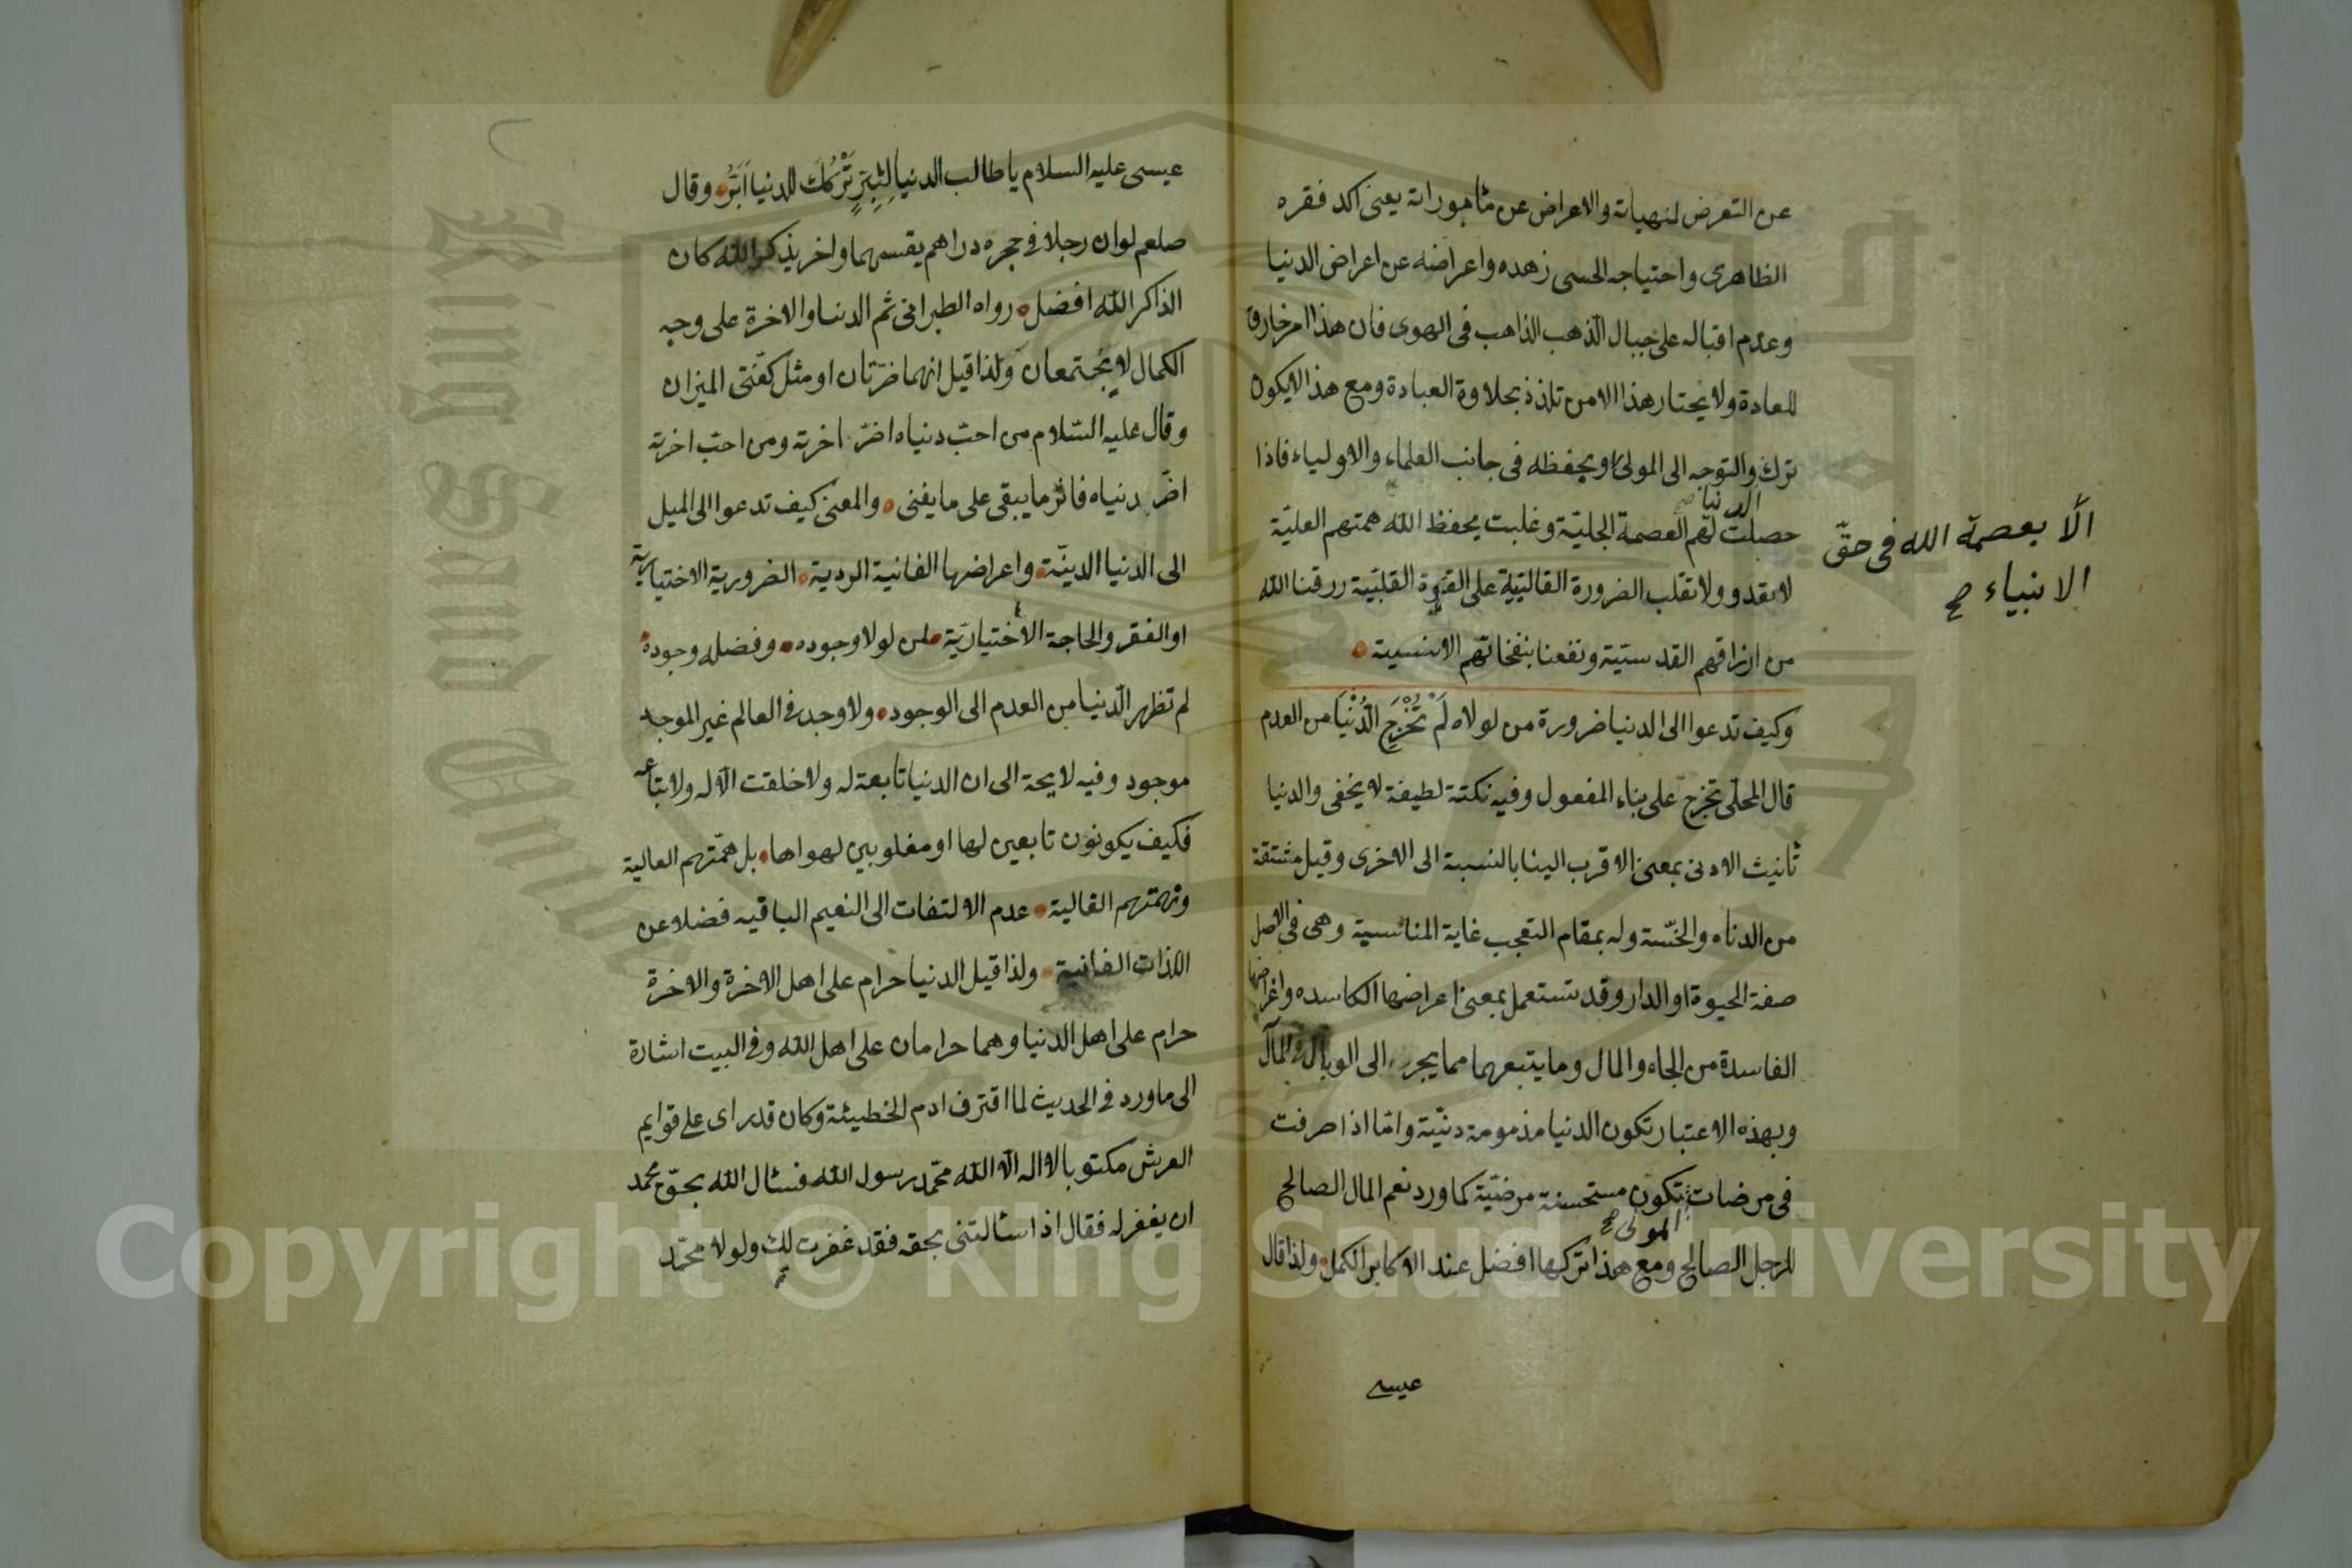 عن التعرض لمنهياته والاعراض عن مأموراته يعنى اكد فقره
الظاهرى واحتياجه الحسى زهده واعراضه عن اعراض الدنيا
وعدم اقباله على جبال الذهب الذاهب فى الهوى فان هذا امر خارق
للعادة ولا يختار هذا الا من تلذذ بحلاوة العبادة ومع هذا لا يكون
ترك والتوجه الى المولى او بحفظه فى جانب العلماء والاولياء فاذا
الدنيا صح
الّا بعصمة الله فى حقّ
الانبياء صح
حصلت لهم العصمة الجليّة وغلبت بحفظ الله همتهم العليّة
لا تعدو ولا تغلب الضرورة القالبيّة على القوة القلبيّة رزقنا الله
من ارزاقهم القدسيّية ونفعنا بنفخاتهم الانسية
وكيف تدعوا الى الدنيا ضرورة من لولاه لَمْ تُخْرَجِ الدُّنْيَا من العدم
قال المحلّى تخرج على بناء المفعول وفيه نكتة لطيفة لا يخفى والدنيا
تأنيث الادنى بمعنى الاقرب الينا بالنسبة الى الاخرى وقيل مشتقة
من الدناه والخسّة وله بمقام التعجب غاية المناسبة وهى فى الاصل
صفة الحيوة او الدار وقد تستعمل بمعنى اعراضها الكاسده واغراضها
الفاسدة من الجاه والمال وما يتبعهما مما يجر الى الوبال فى المآل
وبهذه الاعتبار تكون الدنيا مذمومة دنيّة وامّا اذا صرفت
فى مرضات تكون مستحسنة مرضيّة كما ورد نعم المال الصالح
المولى صح
للرجل الصالح ومع هذا تركها افضل عند الاكابر الكمل ولذا قال
عيسى
عيسى عليه السلام يا طالب الدنيا لِتَبِرَّ تَرْكُكَ للدنيا اَبَرُّ وقال
صلعم لو ان رجلا فى حجره دراهم يقسمها واخر يذكر الله كان
الذاكر لله افضل رواه الطبرانى ثم الدنيا والاخرة على وجه
الكمال لا يجتمعان ولذا قيل انهما ضرّتان او مثل كفّتى الميزان
وقال عليه السّلام من احبّ دنياه اضرّ اخرته ومن احبّ اخرته
اضرّ دنياه فاثر ما يبقى على ما يفنى والمعنى كيف تدعوا الى الميل
الى الدنيا الدنيّة واعراضها الفانية الردية الضرورية الاختيارية
او الفقر والحاجة الاختياريّة لمن لولا وجوده وفضله وجوده
لم تظهر الدّنيا من العدم الى الوجود ولا وجد فى العالم غير الموجد
موجود وفيه لايحة الى ان الدنيا تابعة له ولا خلقت الّا له ولاتباعه
فكيف يكونون تابعين لها او مغلوبين لهواها بل همّتهم العالية
ونهمتهم القالية عدم الالتفات الى النعيم الباقيه فضلا عن
اللذات الفانية ولذا قيل الدنيا حرام على اهل الاخرة والاخرة
حرام على اهل الدنيا وهما حرامان على اهل الله وفى البيت اشارة
الى ما ورد فى الحديث لما اقترف ادم الخطيئة وكان قد راى على قوايم
العرش مكتوبا لا اله الّا الله محمّد رسول الله فسئال الله بحقّ محمد
ان يغفر له فقال اذا سئالتنى بحقه فقد غفرت لك ولولا محمّد
Copyright © King Saud University